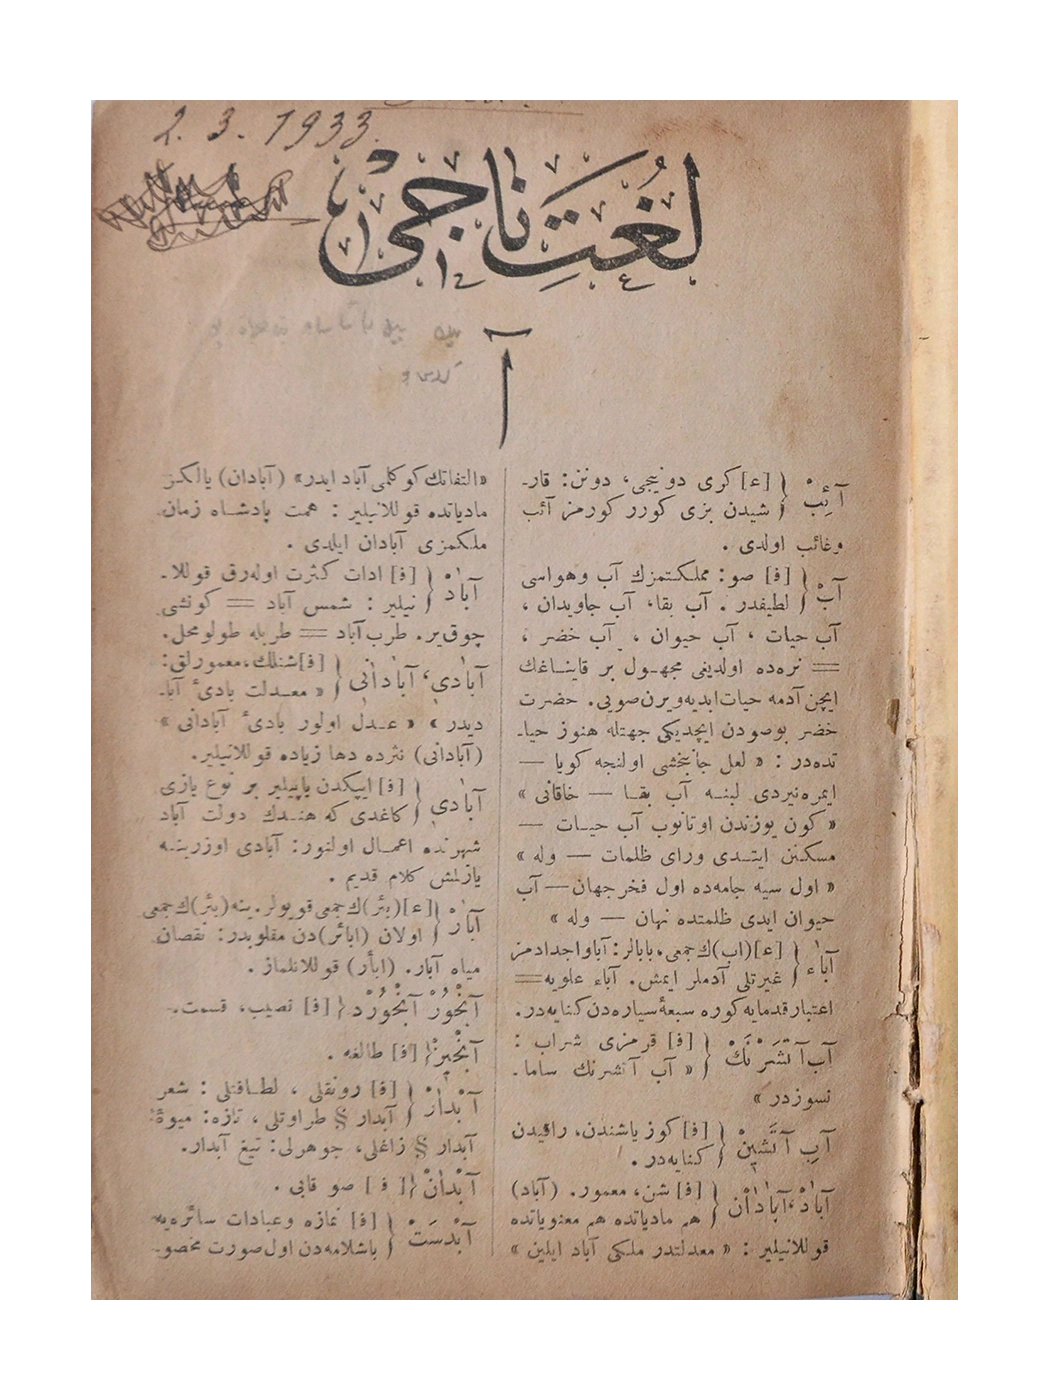 2. 3. 1933.
لُغَتِ نَاجِی
آ
آئِبْ { [ع] کری دونیجی، دونن: قار-
شیدن بزی کورر کورمز آئب
وغائب اولدی .
آبْ { [ف] صو: مملکتمزك آب وهواسی
لطیفدر . آب بقا، آب جاویدان ،
آب حیات ، آب حیوان ، آب خضر ،
== نره‌ده اولدیغی مجهول بر قایناغك
ایچن آدمه حیات ابدیه ویرن صویی. حضرت
خضر بو صودن ایچدیکی جهتله هنوز حیا-
تده‌در : « لعل جانبخشی اولنجه کویا —
ایمره‌نیردی لبنه آب بقا — خاقانی »
« کون یوزندن اوتانوب آب حیات —
مسکنن ایتدی ورای ظلمات — وله »
« اول سیه جامه‌ده اول فخر جهان — آب
حیوان ایدی ظلمتده نهان — وله »
آباء { [ع] (اب)ك جمعی، بابالر: آبا و اجدادمز
غیرتلی آدملر ایمش. آباء علویه ==
اعتبار قدمایه کوره سبعهٔ سیاره‌دن کنایه‌در.
آب آتَشرَنْكْ { [ف] قرمزی شراب :
« آب آتشرنك ساما-
نسوزدر »
آبِ آتَشِینْ { [ف] کوز یاشندن، راقیدن
کنایه‌در .
آبادْ، آبادانْ { [ف] شن، معمور. (آباد)
هم مادیاتده هم معنویاتده
قوللانیلیر : « معدلتدر ملکی آباد ایلین »
«التفاتك کوکلمی آباد ایدر» (آبادان) یالکز
مادیاتده قوللانیلیر : همت پادشاه زمان
ملکمزی آبادان ایلدی .
آبادْ { [ف] ادات کثرت اوله‌رق قوللا-
نیلیر : شمس آباد == کونشی
چوق یر. طرب آباد == طربله طولو محل.
آبادی، آبادانی { [ف] شنلك، معمورلق:
« معدلت بادئ آبا-
دیدر » « عدل اولور بادئ آبادانی »
(آبادانی) نثرده دها زیاده قوللانیلیر.
آبادی { [ف] ایپکدن یاپیلیر بر نوع یازی
کاغدی که هندك دولت آباد
شهرنده اعمال اولنور: آبادی اوزرینه
یازلمش کلام قدیم .
آبار { [ع] (بئر)ك جمعی قویولر. ینه (بئر)ك جمعی
اولان (ابائر)دن مقلوبدر: نقصان
میاه آبار. (ابأر) قوللانلماز .
آبْخُورْ آبْخُورْد { [ف] نصیب، قسمت.
آبْخِیزْ { [ف] طالغه .
آبْدارْ { [ف] رونقلی ، لطافتلی : شعر
آبدار § طراوتلی ، تازه: میوهٔ
آبدار § زاغلی، جوهرلی: تیغ آبدار.
آبْدانْ { [ف] صو قابی .
آبْدَسْتْ { [ف] نمازه وعبادات سائره‌یه
باشلامه‌دن اول صورت مخصو-